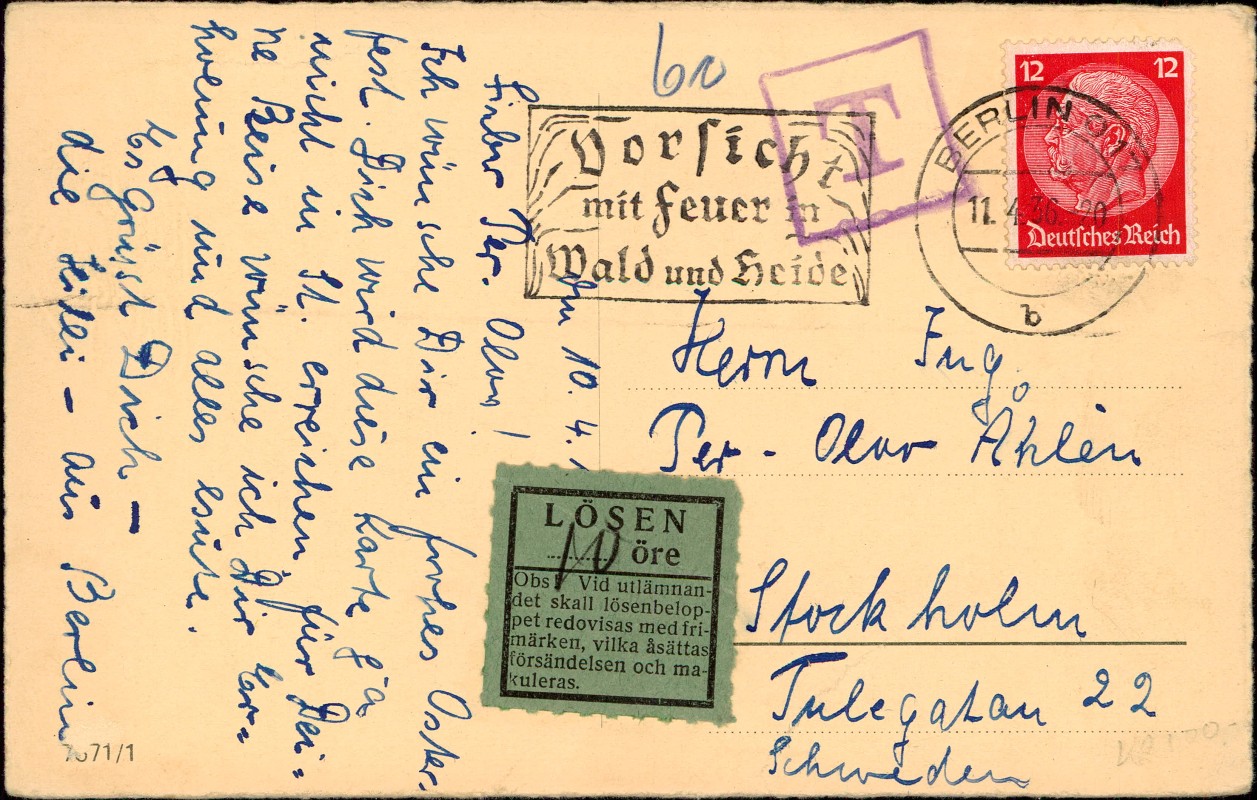 60
T
12 12
Deutsches Reich
BERLIN
11.4.36.-20
b
Vorsicht
mit Feuer in
Wald und Heide
Den 10. 4.
Lieber Per. Olov!
Ich wünsche Dir ein frohes Oster-
fest. Dich wird diese Karte ja
nicht in St. erreichen, für Dei-
ne Reise wünsche ich Dir Er-
holung und alles Gute.
Es grüsst Dich –
die – aus Berlin
Herrn Ing.
Per-Olov Åhlén
Stockholm
Tulegatan 22
Schweden
LÖSEN
10 öre
Obs! Vid utlämnan-
det skall lösenbelop-
pet redovisas med fri-
märken, vilka åsättas
försändelsen och ma-
kuleras.
7671/1